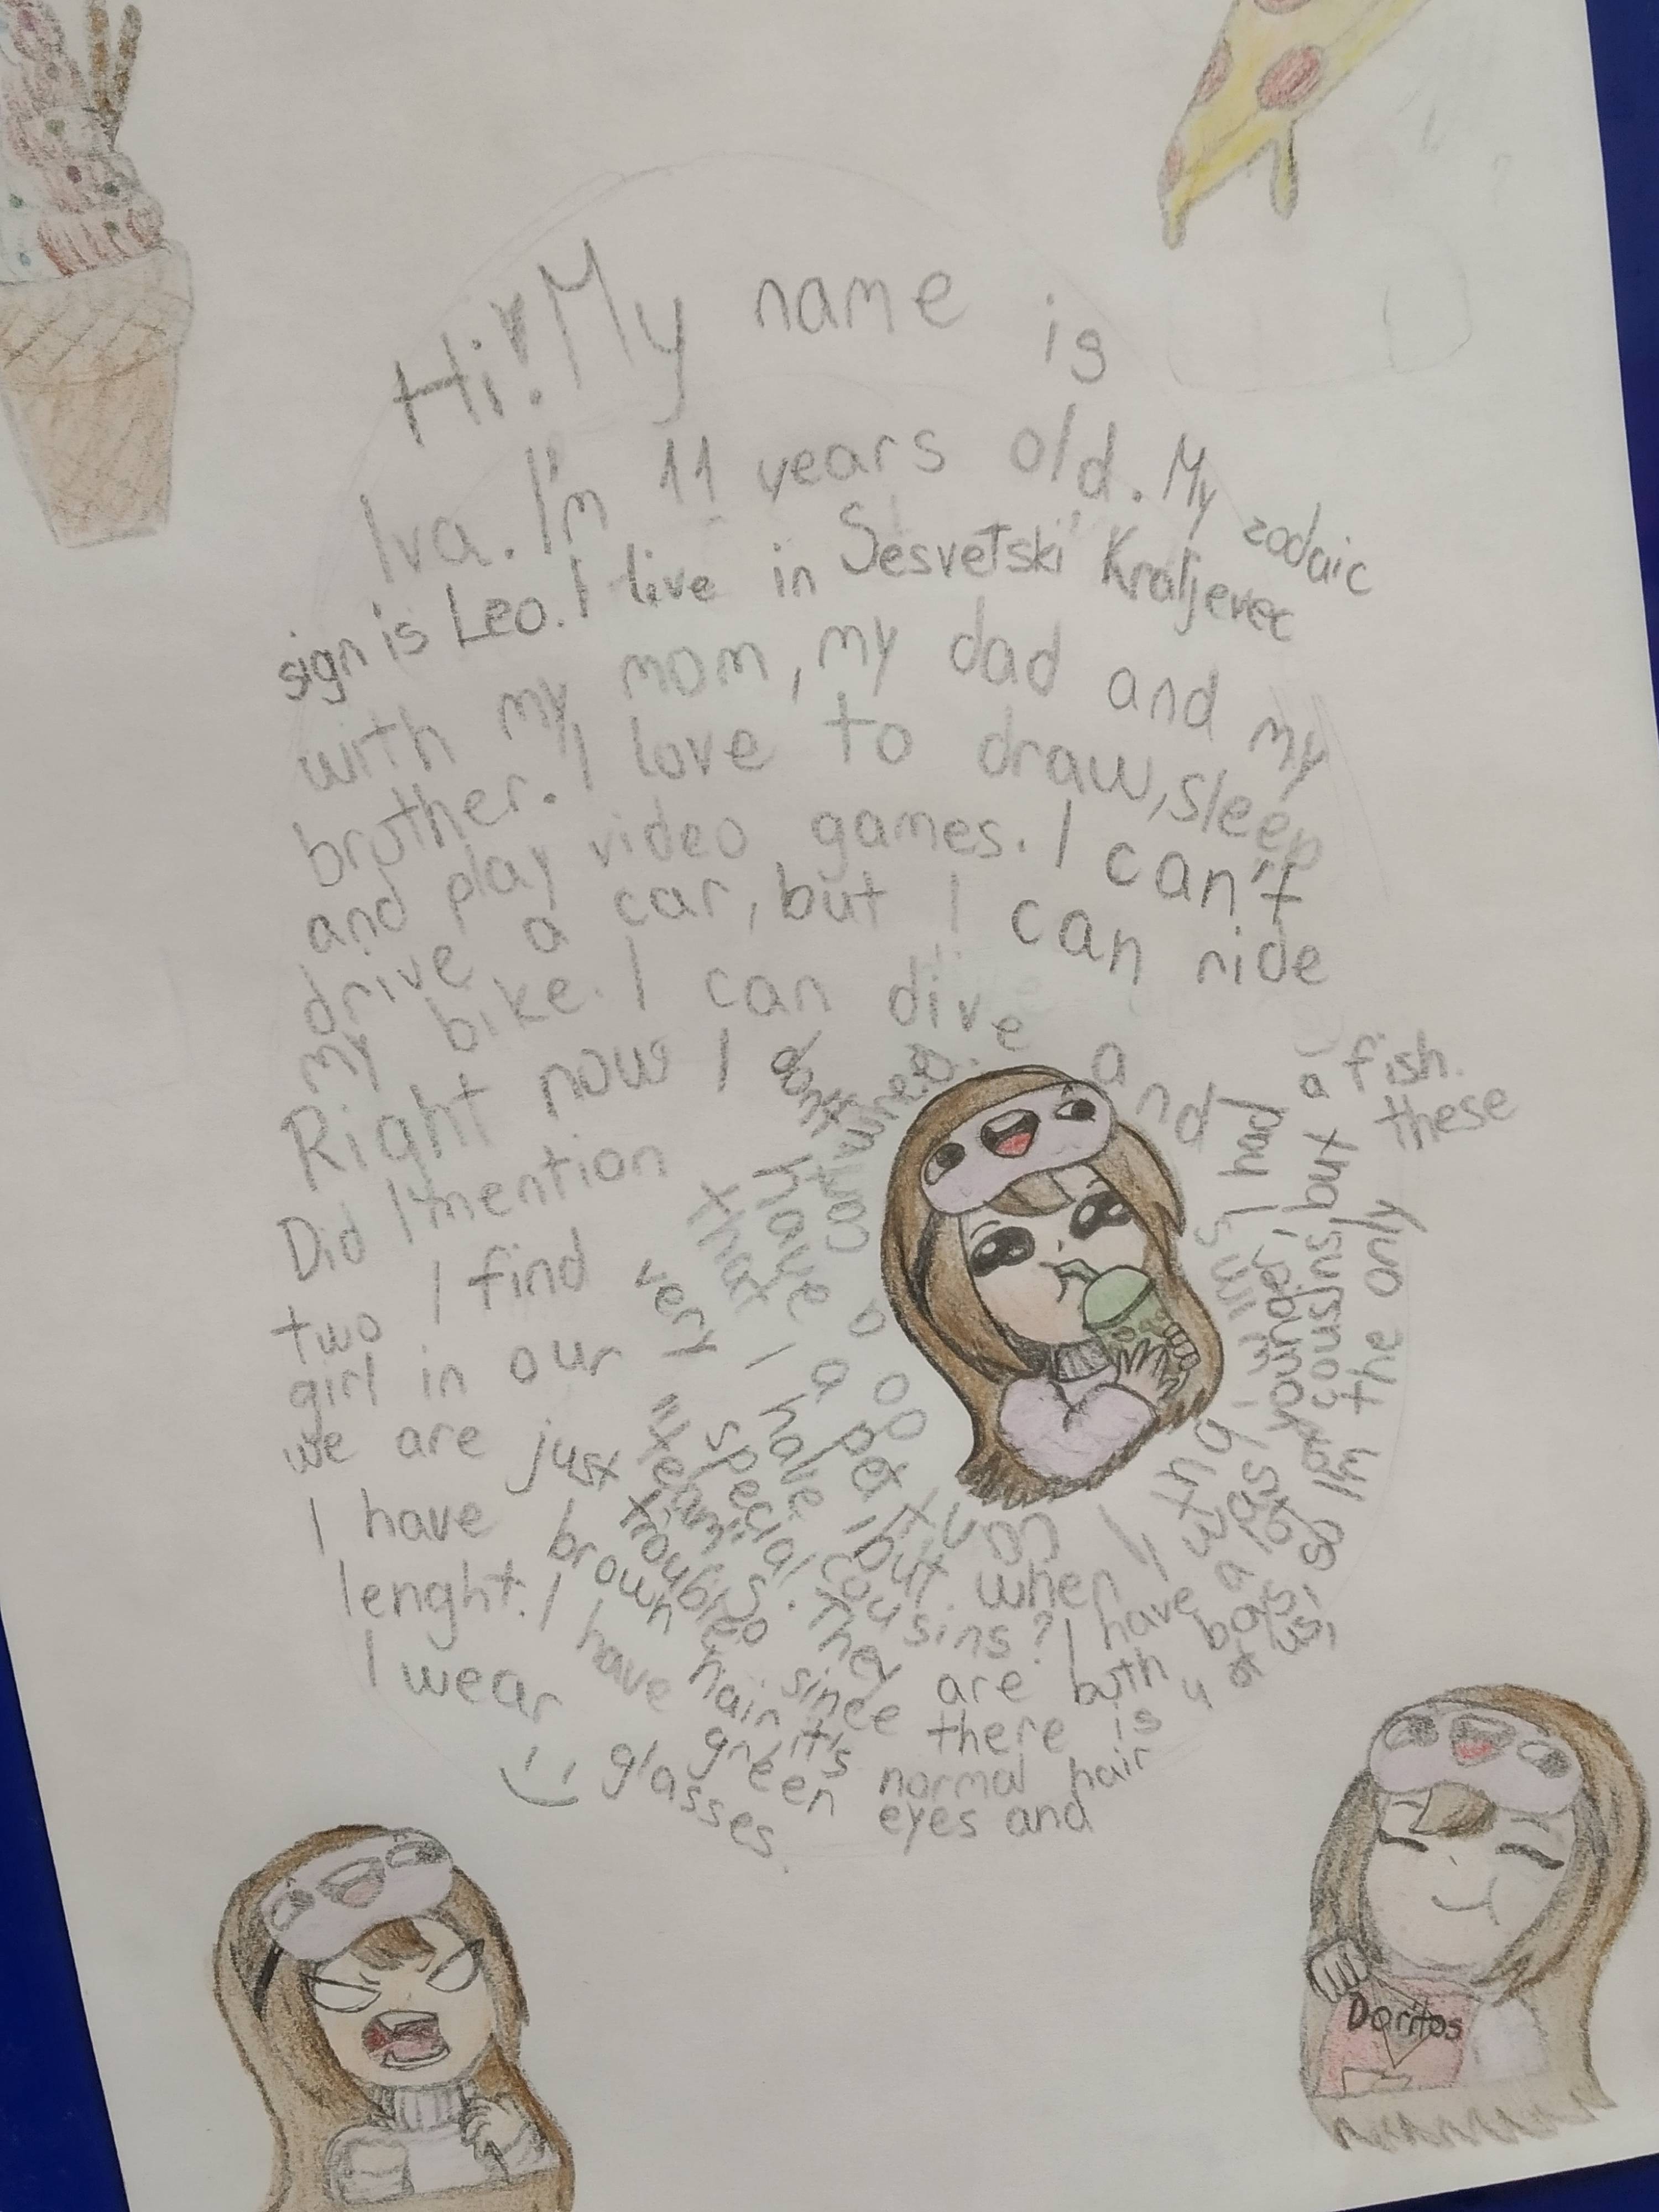 Hi! My name is
Iva. I'm 11 years old. My zodaic
sign is Leo. I live in Sesvetski Kraljevec
with my mom, my dad and my
brother. I love to draw, sleep
and play video games. I can't
drive a car, but I can ride
my bike. I can dive and swim
Right now I don't have a pet, but when I was younger, I had a fish.
Did I mention that I have cousins? I have a lot of cousins, but these
two I find very special. They are both boys, so I'm the only
girl in our "team".
we are just troubles since there is u of us.
I have brown hair it's normal hair
lenght. I have green eyes and
I wear glasses.
Doritos